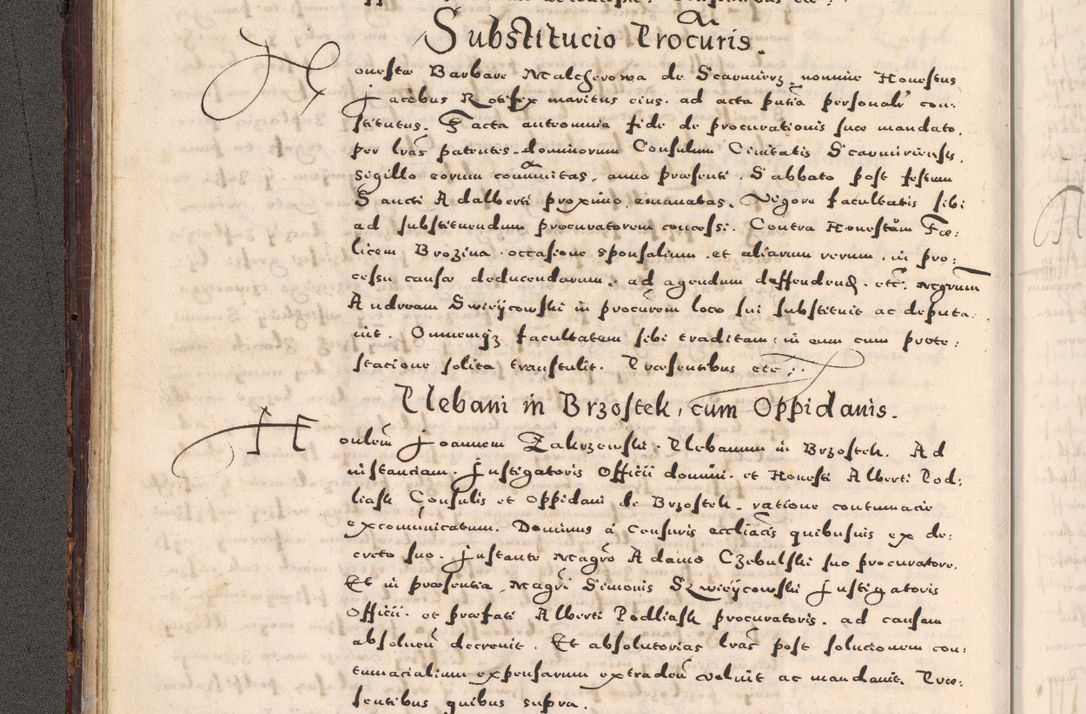 Substitucio Procuris.
Honestæ Barbare Malcherowa de Scarmierz nomine Honestus
Jacobus Rotifex maritus eius. ad acta putia personalr con:
stitutus. acta autromnia fide de procurationis suæ mandato.
per lras patentes dominorum Consulum Ciuitatis Scarmiriensis.
Sigillo eorum comunitas, anno præsenti. Sabbato post festum
Sancti Adalberti proximo, emanatas. Vigore facultatis sibi
ad substituendum procuratorem concessi. Contra Honestam Fæ:
licem Brozina. occasione sponsalium. et aliarum rerum. in pro:
cessu causæ deducendarum. ad agendum deffendend. etc. Mgrum
Andream Swieycowski in procurem loco sui substituit ac deputa
uit. Omnemqz facultatem sibi traditam, in eum cum prote:
stacione solita transtulit. Præsentibus etc.
Plebani in Brzostek, cum Oppidanis.
Honlem Joannem Zakrzewski. Plebanum in Brzostek. Ad
instanciam. Instigatoris Officii domini. et Honesti Alberti Pod:
liask Consulis et Oppidani de Brzostek. ratione contumaciæ
excomunicatum. Dominus á censuris eccliacis quibusuis ex de:
creto suo. Instante Magro Adamo Czebulski suo procuratore.
Et in præsentia Magri Simonis Swieycowski Instigatoris
Officii. et præfati Alberti Podliask procuratoris. ad causam
absoluen decreuit. Et absolutorias lras post solucionem con:
tumacialium expensarum extraden voluit ac mandauit. Præ:
sentibus quibus supra.